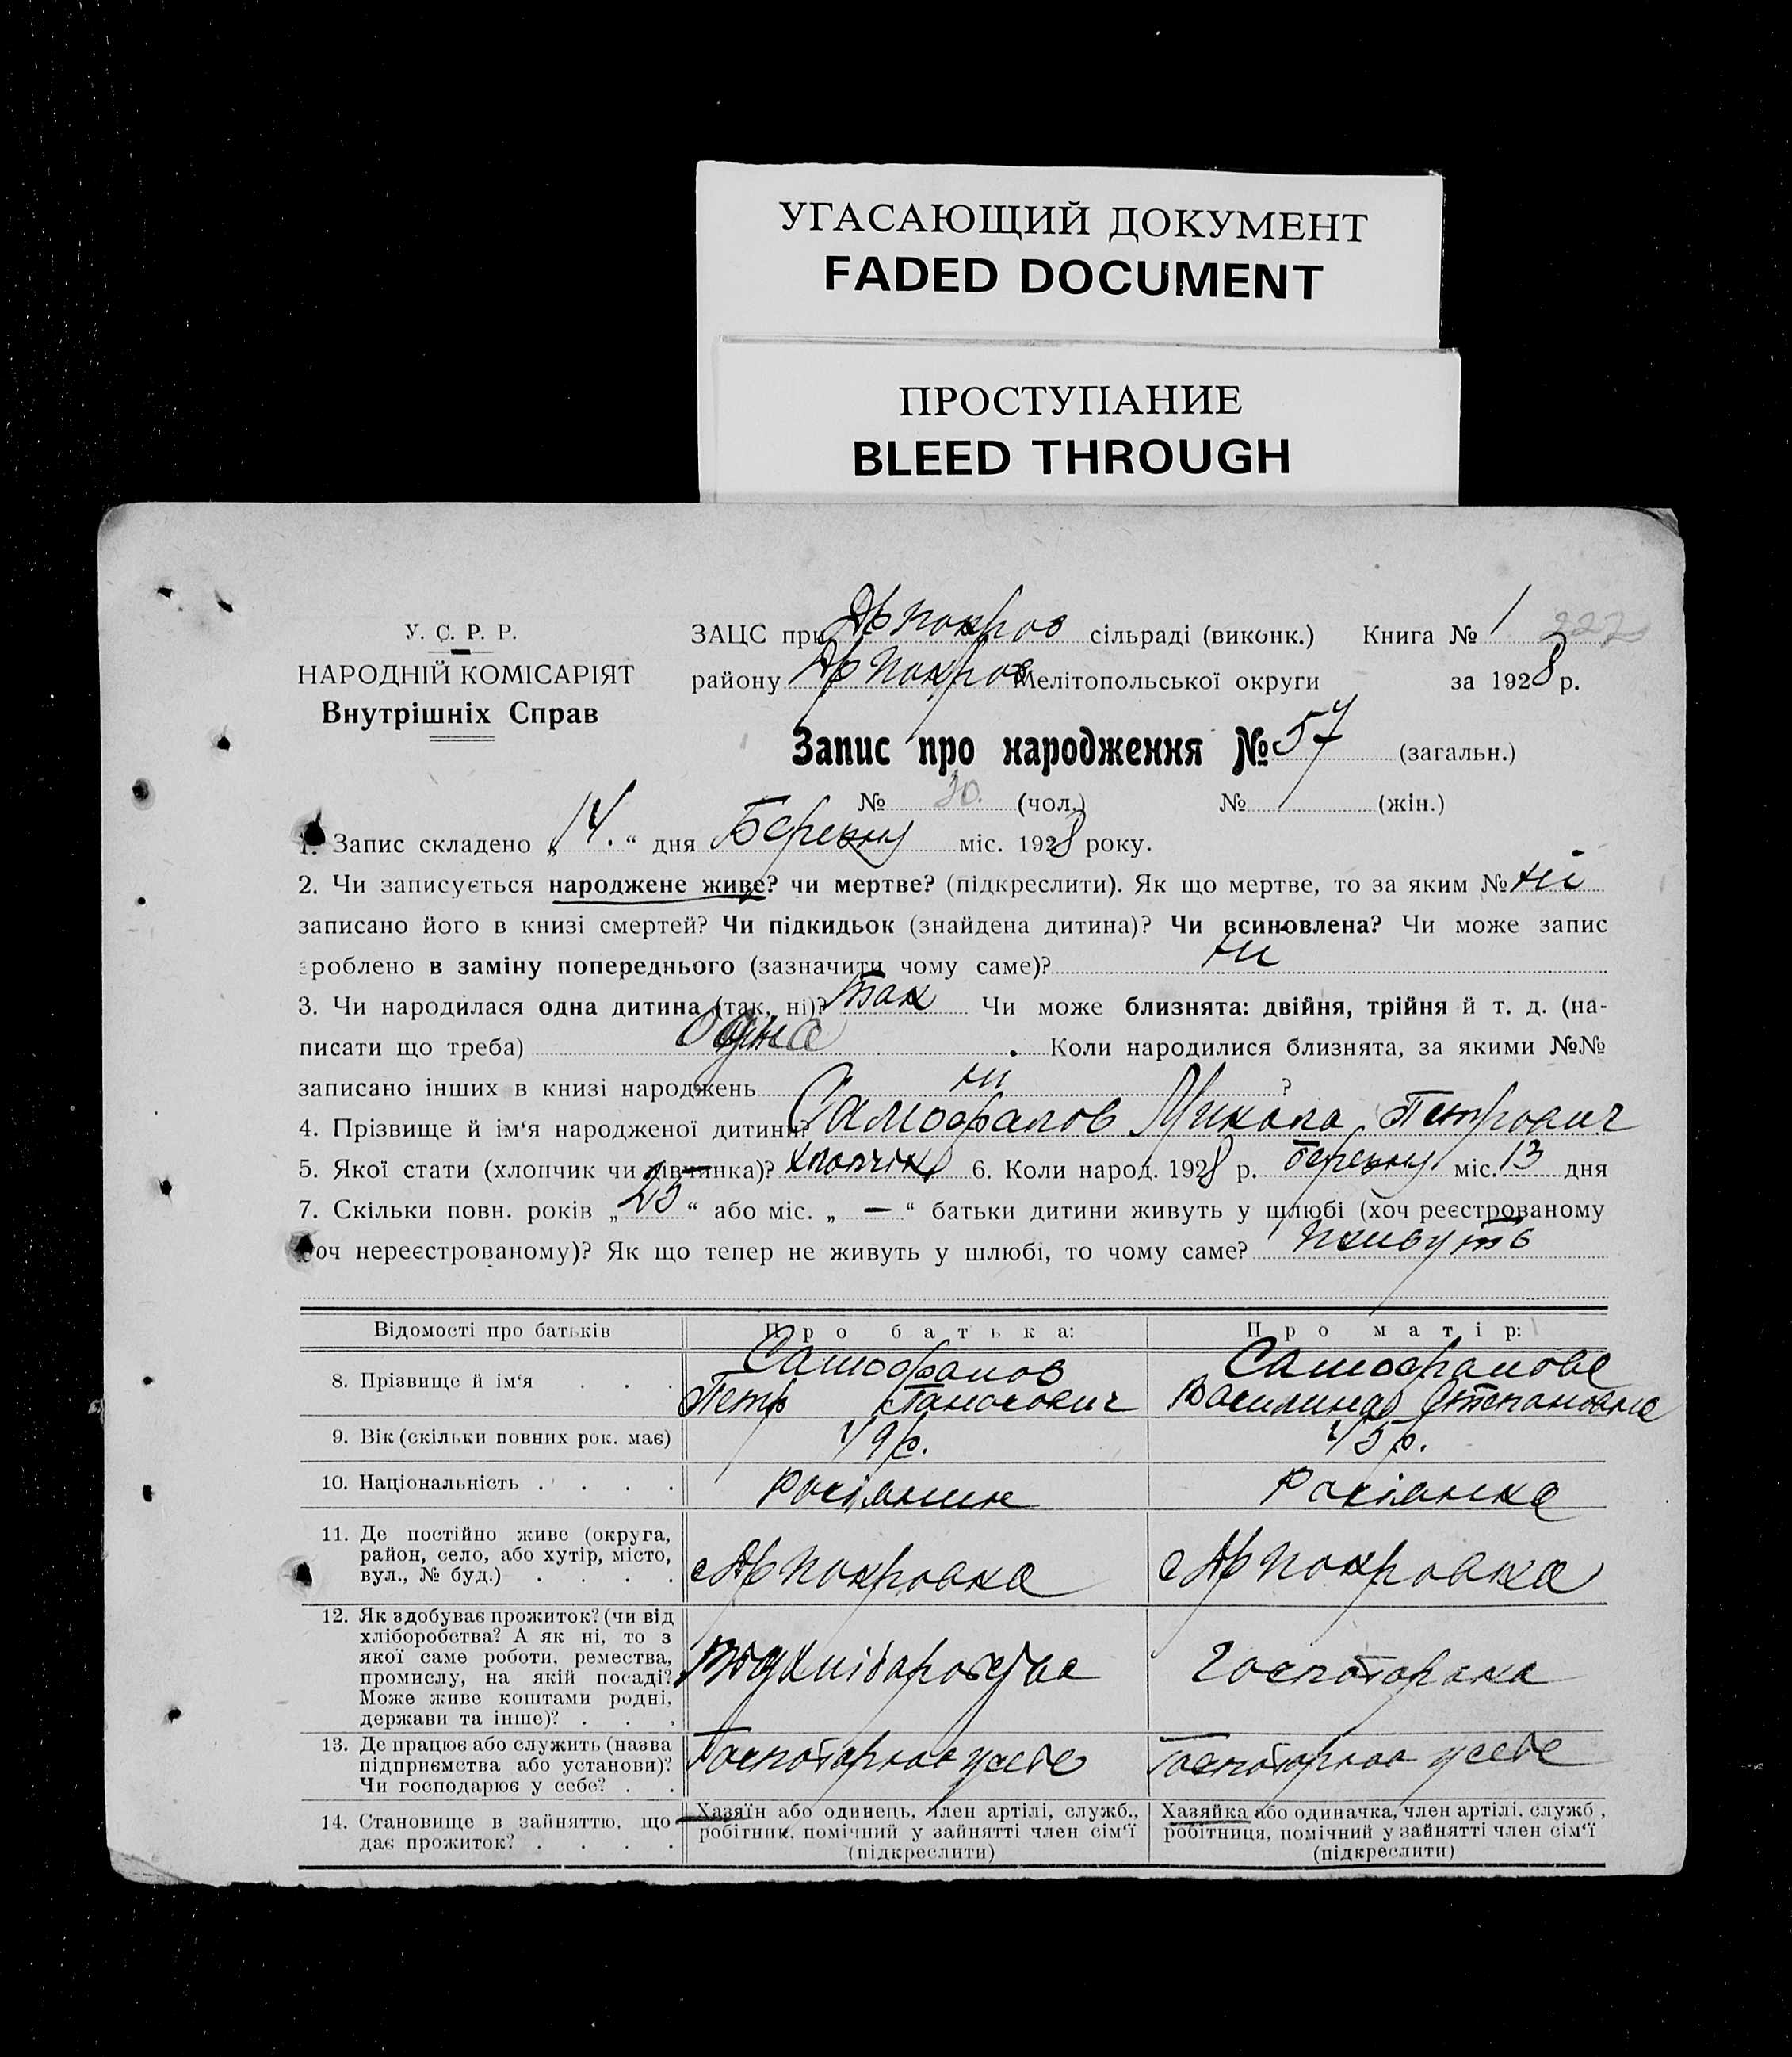 УГАСАЮЩИЙ ДОКУМЕНТ
FADED DOCUMENT
ПРОСТУПАНИЕ
BLEED THROUGH
У. С. Р. Р.
НАРОДНІЙ КОМІСАРІЯТ
Внутрішніх Справ
ЗАЦС при Ак Покров сільраді (виконк.) Книга № 1 222
району Ак Покров Мелітопольської округи за 1928 р.
Запис про народження № 57 (загальн.)
№ 30. (чол.) № (жін.)
1. Запис складено „14.“ дня Березню міс. 1928 року.
2. Чи записується народжене живе? чи мертве? (підкреслити). Як що мертве, то за яким № ні
записано його в книзі смертей? Чи підкидьок (знайдена дитина)? Чи всиновлена? Чи може запис
зроблено в заміну попереднього (зазначити чому саме)? ни
3. Чи народилася одна дитина (так, ні)? так Чи може близнята: двійня, трійня й т. д. (на-
писати що треба) Одна . Коли народилися близнята, за якими №№
записано інших в книзі народжень ни ?
4. Прізвище й ім‘я народженої дитини? Самофалов Микола Петрович
5. Якої стати (хлопчик чи дівчинка)? хлопчік 6. Коли народ. 1928 р. березню міс. 13 дня
7. Скільки повн. років „25“ або міс. „—“ батьки дитини живуть у шлюбі (хоч реєстрованому
хоч нереєстрованому)? Як що тепер не живуть у шлюбі, то чому саме? живуть
Відомості про батьків Про батька: Про матір:
8. Прізвище й ім‘я . . . Самофалов Самофалова
Петр Панасович Василина Степановна
9. Вік (скільки повних рок. має) 49 р. 45 р.
10. Національність . . . . росіянин росіянка
11. Де постійно живе (округа,
район, село, або хутір, місто,
вул., № буд.) . . . . с Ак Покровка с Ак Покровка
12. Як здобуває прожиток? (чи від
хліборобства? А як ні, то з
якої саме роботи, ремества,
промислу, на якій посаді?
Може живе коштами родні,
держави та інше)? . . . від хліборобства господарка
13. Де працює або служить (назва
підприємства або установи)?
Чи господарює у себе? . .
14. Становище в зайняттю, що
дає прожиток? . . . .
Хазяїн або одинець, член артілі, служб.,
робітник, помічний у зайнятті член сім‘ї
(підкреслити)
Хазяйка або одиначка, член артілі, служб ,
робітниця, помічний у зайнятті член сім‘ї
(підкреслити)